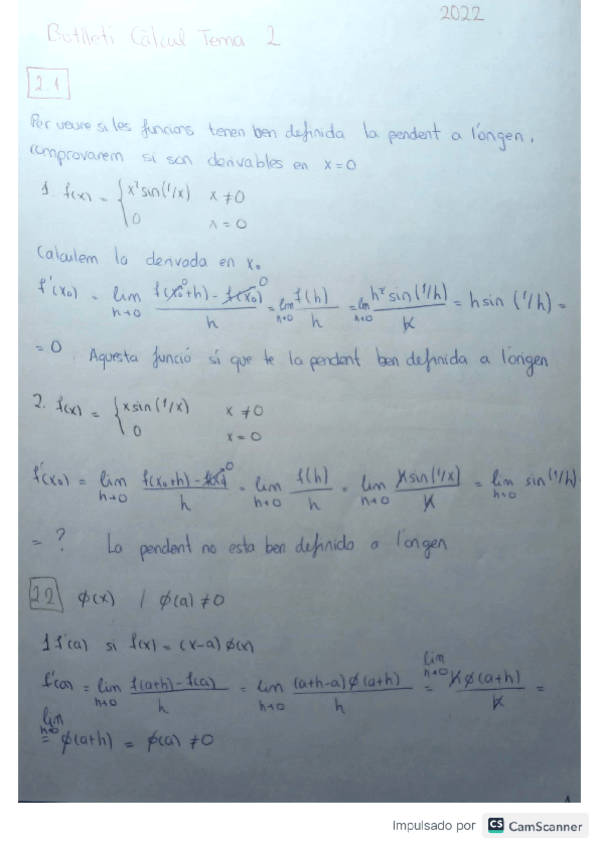 2022
Butlletí Càlcul Tema 2
2.1
Per veure si les funcions tenen ben definida la pendent a l'origen,
comprovarem si son derivables en x=0
1. f(x) = { x² sin(1/x) x≠0
0 x=0
Calculem la derivada en x₀
f'(x₀) = lim h→0 (f(x₀+h) - f(x₀))/h = lim h→0 f(h)/h = lim h→0 h² sin(1/h)/h = h sin(1/h) =
= 0. Aquesta funció si que te la pendent ben definida a l'origen
2. f(x) = { x sin(1/x) x≠0
0 x=0
f'(x₀) = lim h→0 (f(x₀+h) - f(x₀))/h = lim h→0 f(h)/h = lim h→0 x sin(1/x)/h = lim h→0 sin(1/h)
= ? La pendent no esta ben definida a l'origen
2.2 ϕ(x) / ϕ(a)≠0
1 f'(a) si f(x) = (x-a) ϕ(x)
f'(a) = lim h→0 (f(a+h) - f(a))/h = lim h→0 (a+h-a)ϕ(a+h)/h = lim h→0 hϕ(a+h)/h =
= lim h→0 ϕ(a+h) = ϕ(a) ≠0
Impulsado por CS CamScanner